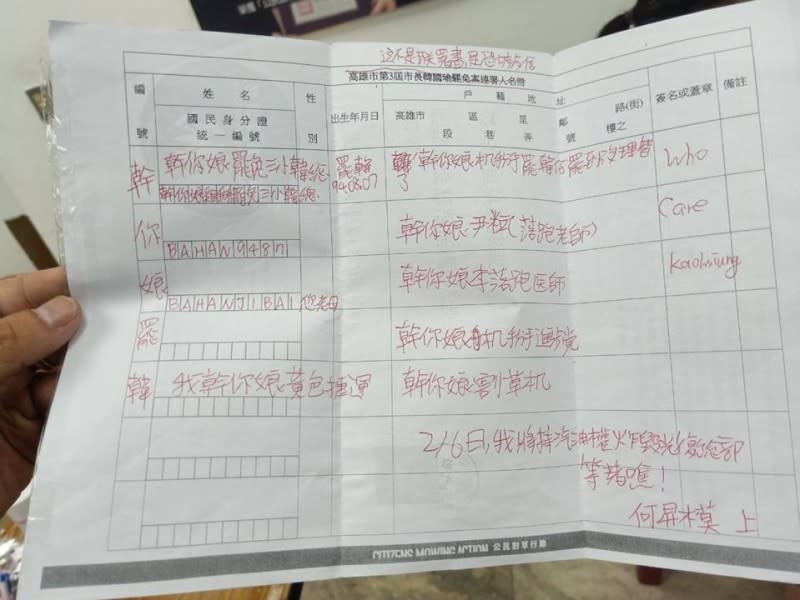 這不是聯署書,是恐嚇信
高雄市第3屆市長韓國瑜罷免案連署人名冊
編號
姓名
國民身分證
統一編號
性別
出生年月日
戶籍地址
高雄市 區 里 鄰 路(街)
段 巷 弄 號 樓之
簽名或蓋章
備註
幹 幹你娘罷免三小韓總 罷韓 幹你娘机掰罷韓你罷
幹你娘 罷免三小韓總 940807 Who
你 BAHAN9487 幹你娘尹 (落跑老師) Care
娘 BAHANJIBAI 您老母 幹你娘李落跑医師 Kaohsiung
罷 幹你娘 机掰進 党
韓 我幹你娘黃色捷運 幹你娘割草机
2/6日,我將持汽油 火炸毀 總部
等着瞧!
何 上
CITIZENS MOWING ACTION 公民割草行動